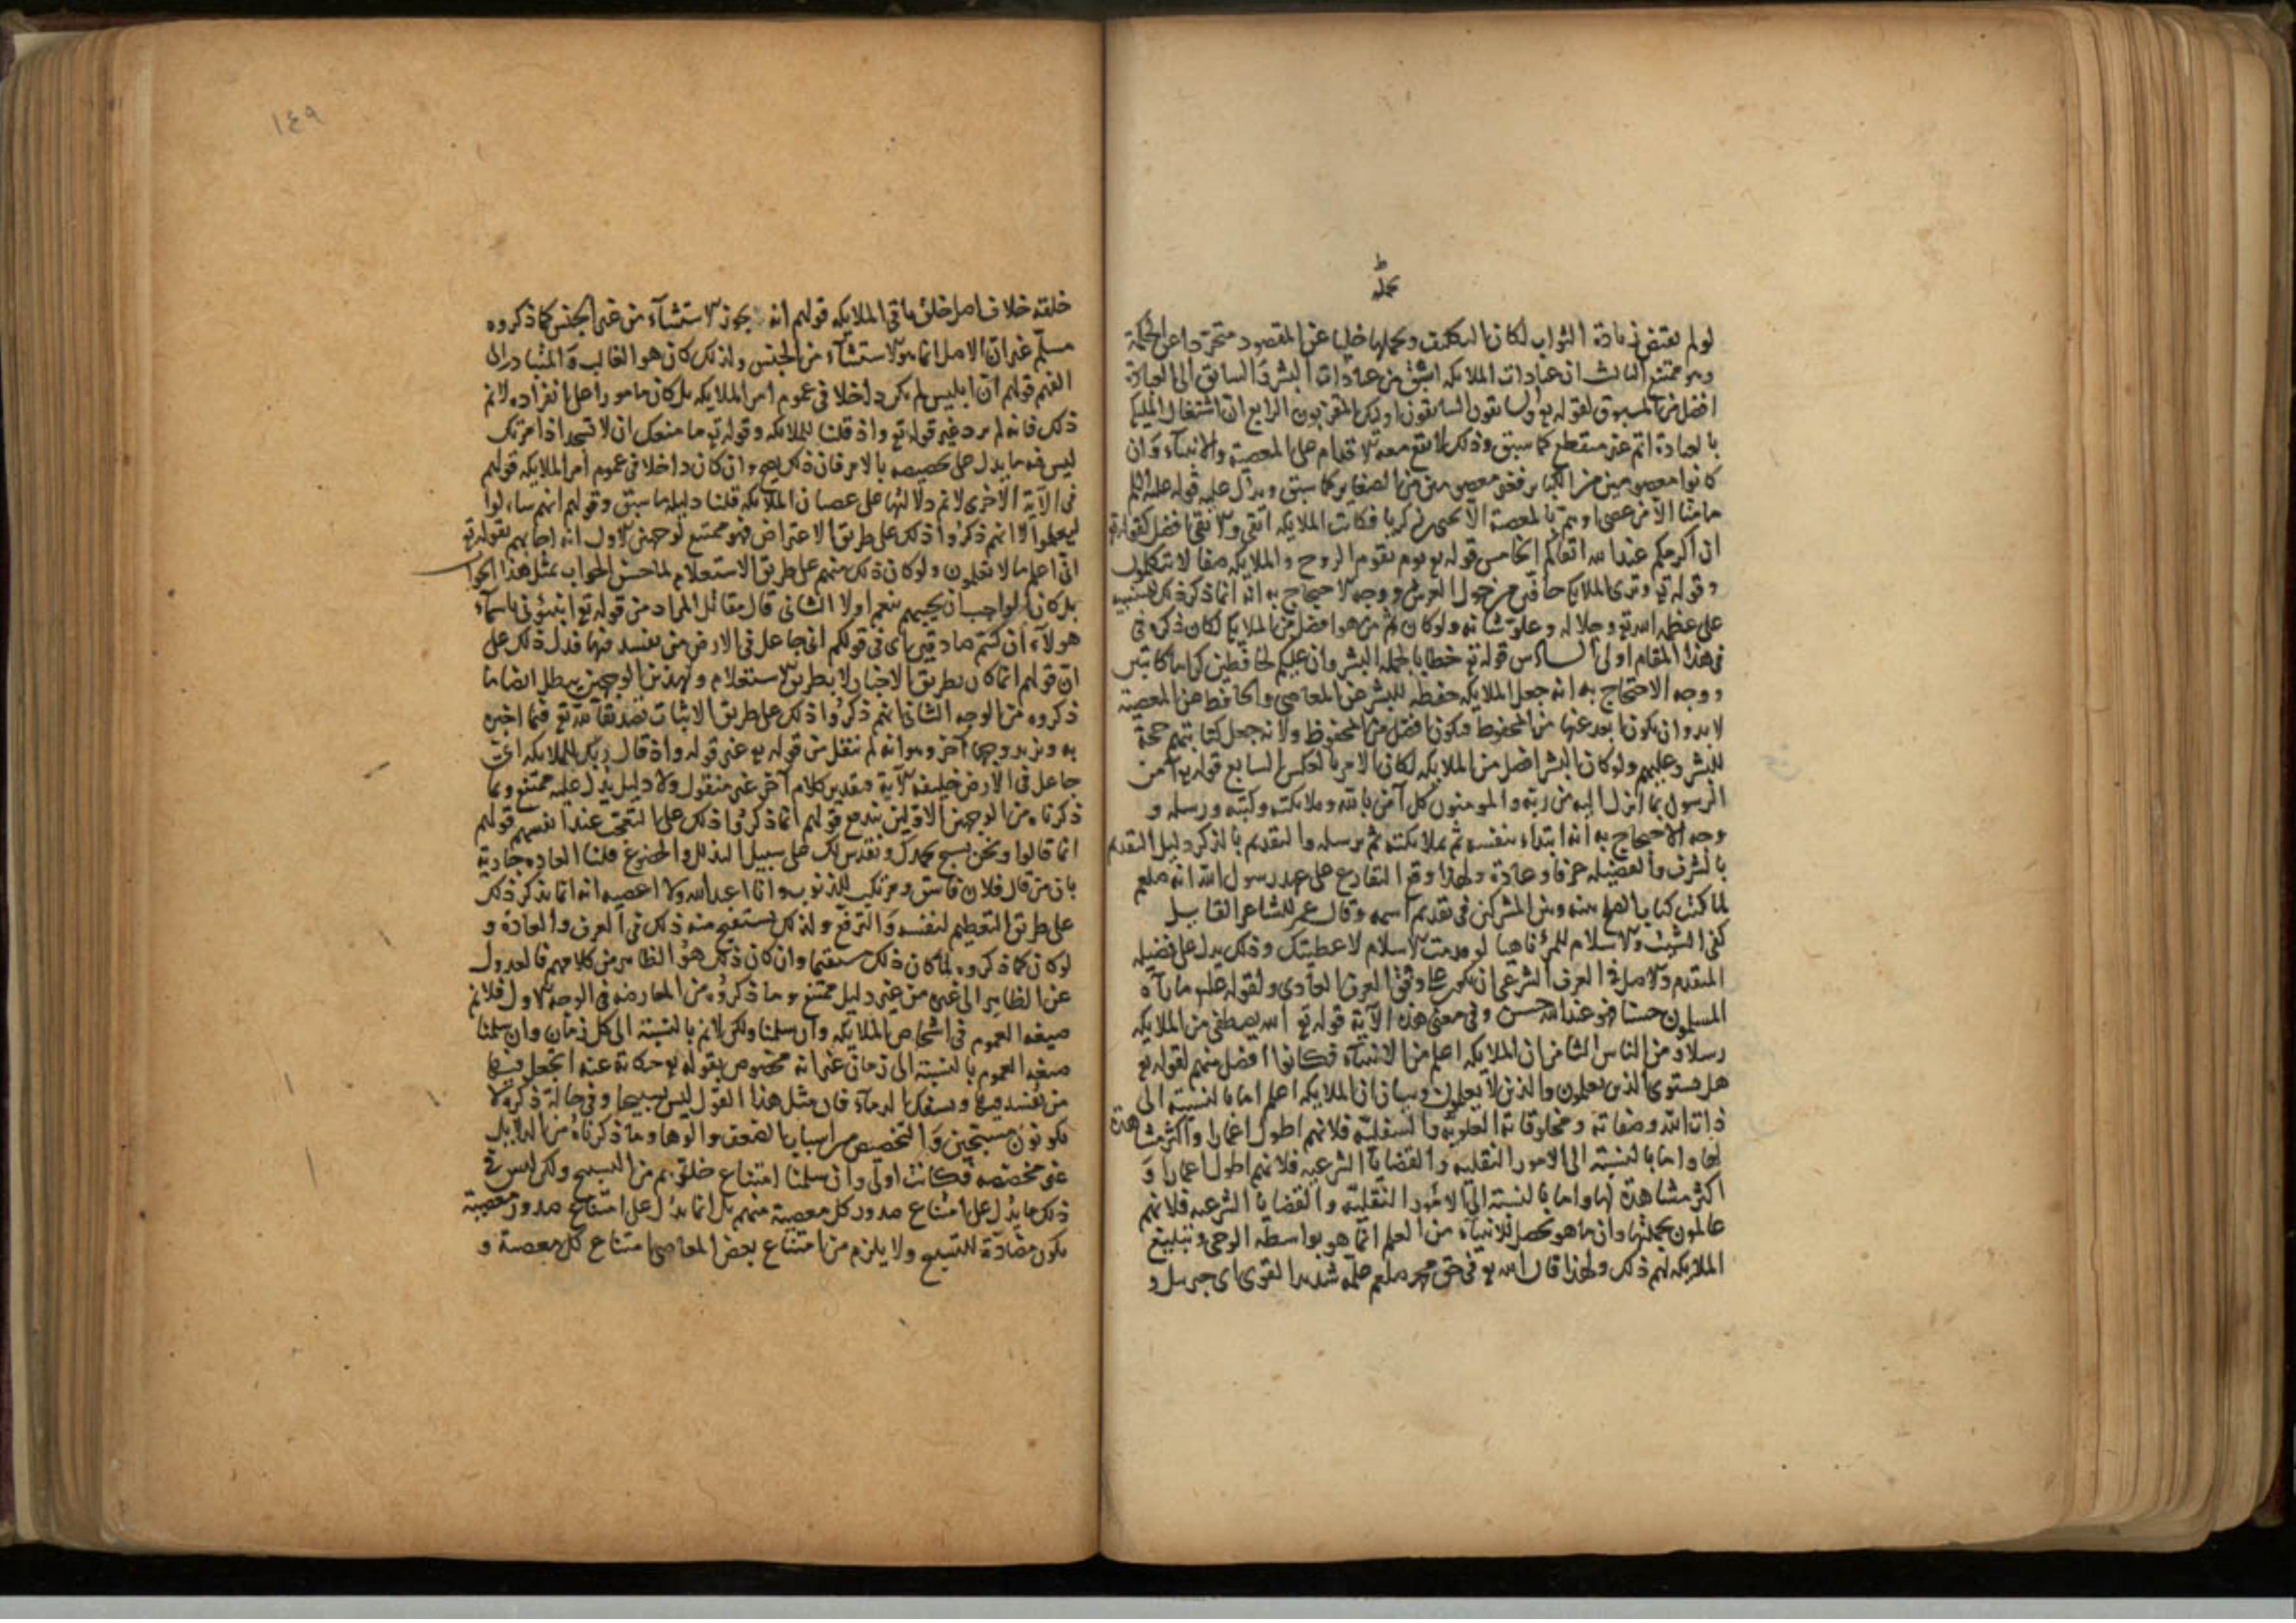 محلّه
لو لم يقتض زيادة الثواب لكان التكليف وتحملها خليا عن المقصود متجردا عن الحكمة
وهو ممتنع الثالث ان عبادات الملايكه اسبق من عبادات البشر والسابق الى العبادة
افضل من المسبوق لقوله تع والسابقون السابقون اوليك المقربون الرابع ان اشتغال الملايكه
بالعبادة اتم غير منقطع كما سبق وذلك لا يقع معه الاقدام على المعصية والانبياء وان
كانوا معصومين من الكباير فغير معصومين من الصغاير كما سبق ويدل عليه قوله عليه السلم
ما منا الا من عصى او هم بالمعصية الا يحيى بن زكريا فكانت الملايكه اتقى والاتقى افضل لقوله تع
ان اكرمكم عند الله اتقاكم الخامس قوله تع يوم يقوم الروح والملايكه صفا لا يتكلمون
وقوله تع وترى الملايكة حافين من حول العرش ووجه الاحتجاج به انه انما ذكر ذلك
على عظمه الله تع وجلاله وعلو شانه ولو كان ثم من هو افضل من الملايكة لكان ذكره في
في هذا المقام اولى السادس قوله تع خطابا لجملة البشر وان عليكم لحافظين كراما كاتبين
ووجه الاحتجاج به انه جعل الملايكه حفظه للبشر عن المعاصي والحافظ عن المعصية
لا بد وان يكون ابعد عنها من المحفوظ فيكون افضل من المحفوظ ولانه جعل كتابتهم حجة
للبشر وعليهم ولو كان البشر افضل من الملايكه لكان الامر بالعكس السابع قوله تع آمن
الرسول بما انزل اليه من ربه والمومنون كل آمن بالله وملايكته وكتبه ورسله و
وجه الاحتجاج به انه ابتداء بنفسه ثم بملايكته ثم برسله والتقديم بالذكر دليل التقديم
بالشرف والفضيله عرفا وعادة ولهذا وقع التقارع على عهد رسول الله انه صلعم
لما كتب كتاب الصلح بينه وبين المشركين في تقديم اسمه وقال عمر للشاعر القايل
كفى الشيب والاسلام للمرء ناهيا لو قدمت الاسلام لاعطيتك وذلك يدل على فضيله
المتقدم والاصل في العرف الشرعي ان يكون على وفق العرف العادي ولقوله علم ما رآه
المسلمون حسنا فهو عند الله حسن وفي معنى هذه الآية قوله تع الله يصطفي من الملايكه
رسلا ومن الناس الثامن ان الملايكه اعلم من الانبياء فكانوا افضل منهم لقوله تع
هل يستوي الذين يعلمون والذين لا يعلمون وبيان ان الملايكه اعلم اما بالنسبة الى
ذات الله وصفاته ومخلوقاته العلويه والسفليه فلانهم اطول اعمارا واكثر مشاهدة
لها واما بالنسبة الى الامور النقليه والقضايا الشرعيه فلانهم اطول اعمارا و
اكثر مشاهدة لها واما بالنسبة الى الامور النقليه والقضايا الشرعيه فلانهم
عالمون بجملتها وان ما هو يحصل للانبياء من العلم انما هو بواسطه الوحي وتبليغ
الملايكه لهم ذلك ولهذا قال الله تع في حق محمد صلعم علمه شديد القوى اى جبريل و
١٤٩
خلقه خلاف اصل خلق باقي الملايكه قولهم انه يجوز الاستثناء من غير الجنس كما ذكروه
مسلم غير ان الاصل انما هو الاستثناء من الجنس ولذلك كان هو الغالب والمتبادر الى
الفهم قولهم ان ابليس لم يكن داخلا في عموم امر الملايكه بل كان مامورا على انفراده لا نم
ذلك فانه لم يرد غير قوله تع واذ قلنا للملايكه وقوله تع ما منعك ان لا تسجد اذ امرتك
ليس فيه ما يدل على تخصيصه بالامر فان ذلك يصح وان كان داخلا في عموم امر الملايكه قولهم
في الآية الاخرى لا نم دلالتها على عصيان الملايكه قلنا دليله ما سبق وقولهم انهم سالوا
ليعلموا لا انهم ذكروا ذلك على طريق الاعتراض فهو ممتنع لوجهين الاول انه اجابهم بقوله تع
اني اعلم ما لا تعلمون ولو كان ذلك منهم على طريق الاستعلام لما حسن الجواب بمثل هذا الجواب
بل كان الواجب ان يجيبهم بنعم او لا الثاني قال مقاتل المراد من قوله تع انبئوني باسماء
هولاء ان كنتم صادقين اى في قولكم اني جاعل في الارض من يفسد فيها فدل ذلك على
ان قولهم انما كان بطريق الاخبار لا بطريق الاستعلام وبهذين الوجهين يبطل ايضا ما
ذكروه من الوجه الثاني انهم ذكروا ذلك على طريق الاثبات تصديقا لله تع فيما اخبر
به ويزيد وجها آخر وهو انه لم ينقل من قوله تع غير قوله واذ قال ربك للملايكه اني
جاعل في الارض خليفه الآية فتقدير كلام آخر غير منقول ولا دليل يدل عليه ممتنع وبما
ذكرناه من الوجهين الاولين يندفع قولهم انما ذكروا ذلك على التعجب عند انفسهم قولهم
انما قالوا ونحن نسبح بحمدك ونقدس لك على سبيل التذلل والخضوع قلنا العاده جارية
بان من قال فلان فاسق ومرتكب للذنوب وانا اعبد الله ولا اعصيه انه انما يذكر ذلك
على طريق التعظيم لنفسه والترفع ولذلك يستقبح منه ذلك في العرف والعادة و
لو كان كما ذكروه لما كان ذلك مستقبحا وان كان ذلك هو الظاهر من كلامهم فالعدول
عن الظاهر الى غيره من غير دليل ممتنع وما ذكروه من المعارضه في الوجه الاول فلا نم
صيغه العموم في اشخاص الملايكه وان سلمنا ولكن لا نم بالنسبة الى كل زمان وان سلمنا
صيغه العموم بالنسبة الى زمان غير انه مخصوص بقوله تع حكاية عنهم اتجعل فيها
من يفسد فيها ويسفك الدماء فان مثل هذا القول ليس تسبيحا وفي حالة ذكره لا
يكونون مسبحين والتخصيص من اسباب الضعف والوها وما ذكرناه من الدلايل
غير مخصصه فكانت اولى وان سلمنا امتناع خلوهم من التسبيح ولكن ليس في
ذلك ما يدل على امتناع صدور كل معصية منهم بل انما يدل على امتناع صدور معصية
يكون مضادة للتسبيح ولا يلزم من امتناع بعض المعاصي امتناع كل معصية و